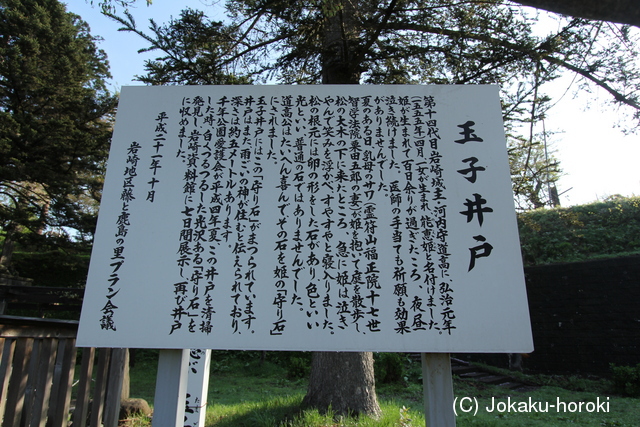 玉子井戸
第十四代目岩崎城主・河内守道高に、弘治元年
(一五五五年)四月、女の子が生まれ、能恵姫と名付けました。
姫が生まれて百日余りが過ぎたころ、夜昼
泣き続けました。医師の手当ても祈願も効果
がありませんでした。
夏のある日、乳母のサワ(霊符山福正院十七世
智学法院粟田五郎の妻)が姫を抱いて庭を散歩し、
松の大木の下に来たところ、急に姫は泣き
やんで笑みを浮べ、すやすやと寝入りました。
松の根元には卵の形をした石があり、色といい
光といい、普通の石ではありませんでした。
道高公はたいへん喜んで、その石を姫の「守り石」
にされました。
玉子井戸にはこの「守り石」がまつられています。
井戸はまた、雨ごいの神が住むと伝えられており、
深さは約五メートルあります。
千年公園愛護会が平成四年夏、この井戸を清掃
した時、白くつるつるした光沢ある「守り石」を
発見し、岩崎資料館に七日間展示し、再び井戸
に収めました。
平成二十一年十月
岩崎地区藤と鹿島の里プラン会議
(C) Jokaku-horoki